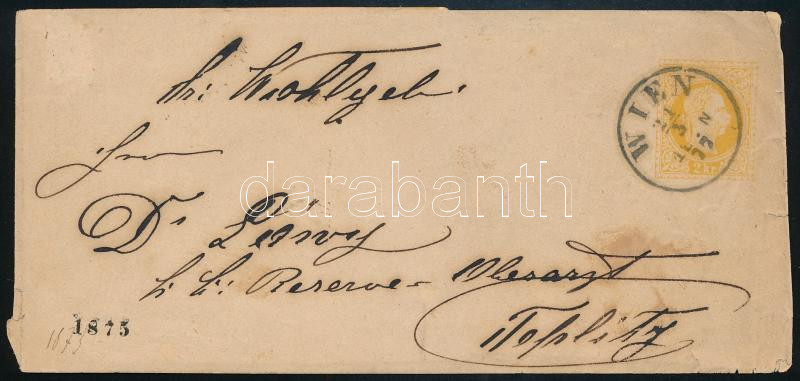 Sr: Wohlgeb.
Herrn
Dr Löwy
k. k: Reserve-Oberarzt
Teplitz
WIEN
2 KR
1875
1875
darabanth